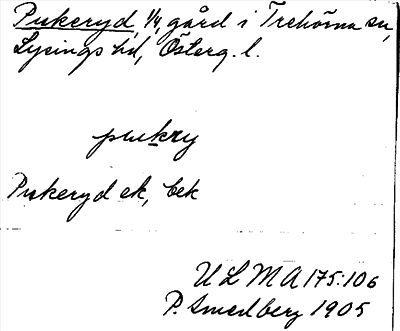 Pukeryd, 1/4 gård i Trehörna sn,
Lysings hd, Österg. l.
pukry
Pukeryd ek, bek
ULMA 175:106
P. Smedberg 1905